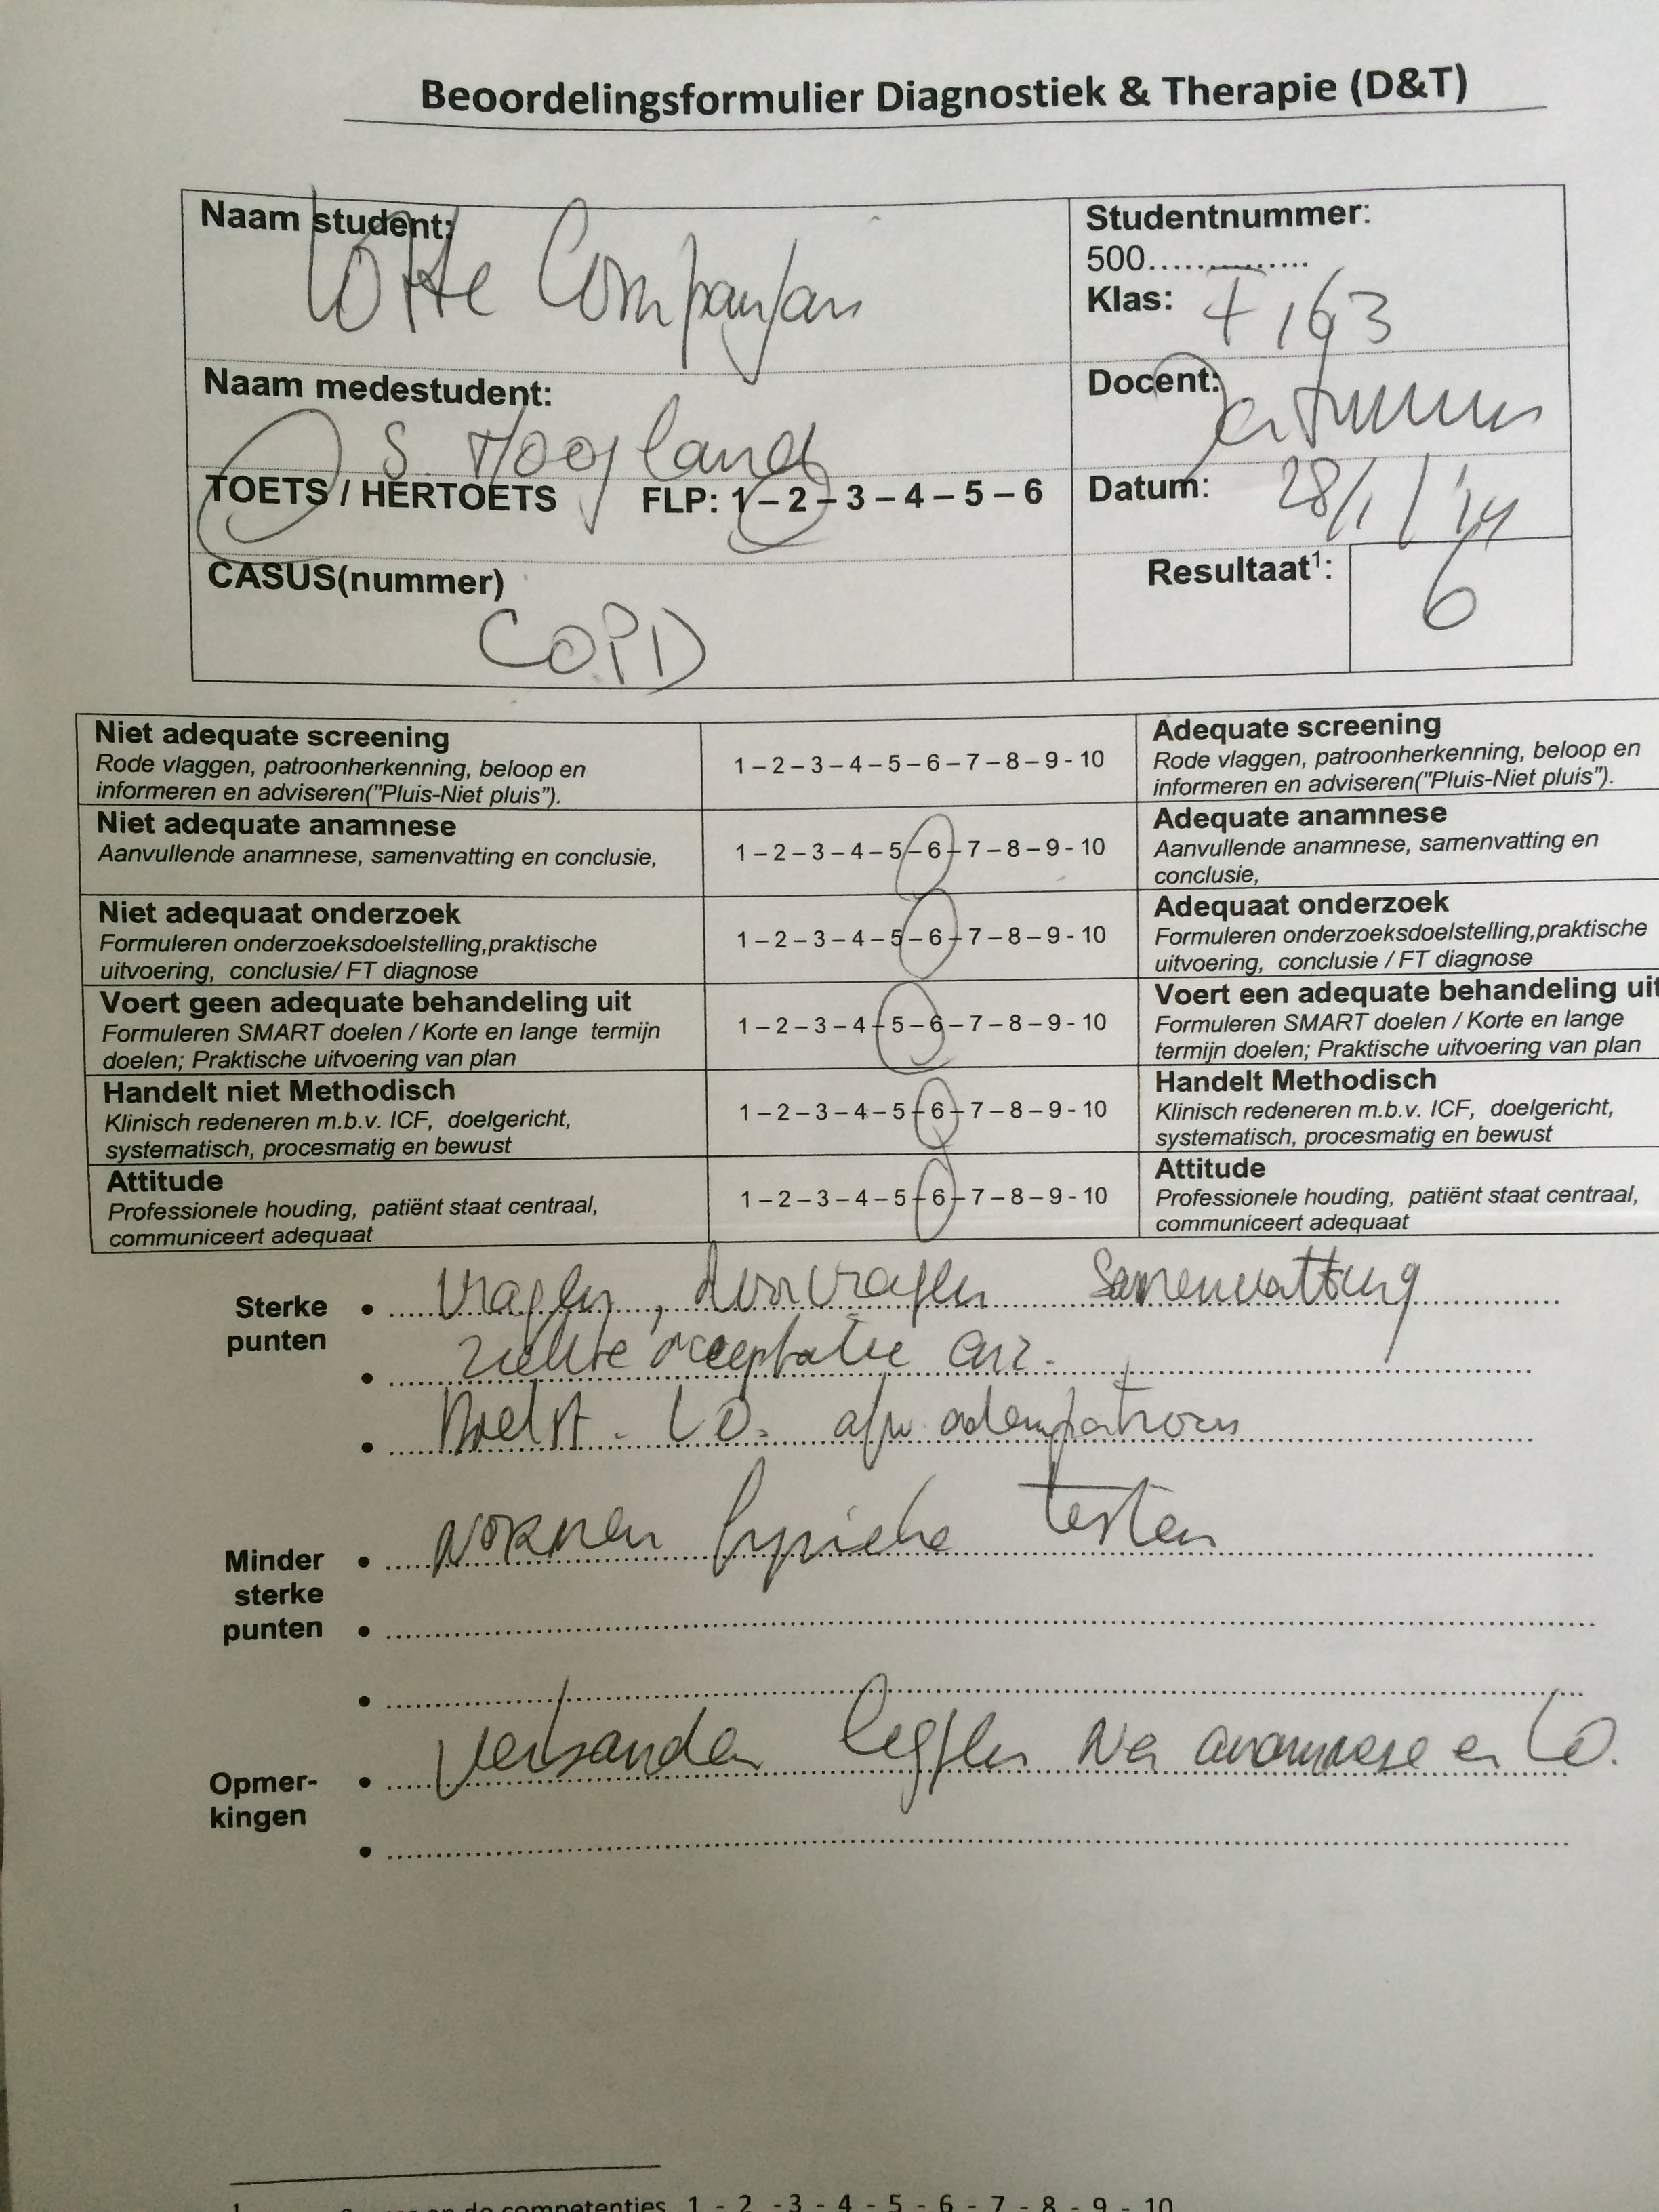 Beoordelingsformulier Diagnostiek & Therapie (D&T)
Naam student:
Lotte Companjan
Studentnummer:
500...............
Klas:
Naam medestudent:
S. Hoogland
Docent:
TOETS / HERTOETS FLP: 1 – 2 – 3 – 4 – 5 – 6
Datum: 28/1/'14
CASUS(nummer)
COPD
Resultaat¹: 6
Niet adequate screening
Rode vlaggen, patroonherkenning, beloop en
informeren en adviseren("Pluis-Niet pluis").
1 – 2 – 3 – 4 – 5 – 6 – 7 – 8 – 9 - 10
Adequate screening
Rode vlaggen, patroonherkenning, beloop en
informeren en adviseren("Pluis-Niet pluis").
Niet adequate anamnese
Aanvullende anamnese, samenvatting en conclusie,
1 – 2 – 3 – 4 – 5 – 6 – 7 – 8 – 9 - 10
Adequate anamnese
Aanvullende anamnese, samenvatting en
conclusie,
Niet adequaat onderzoek
Formuleren onderzoeksdoelstelling,praktische
uitvoering, conclusie/ FT diagnose
1 – 2 – 3 – 4 – 5 – 6 – 7 – 8 – 9 - 10
Adequaat onderzoek
Formuleren onderzoeksdoelstelling,praktische
uitvoering, conclusie / FT diagnose
Voert geen adequate behandeling uit
Formuleren SMART doelen / Korte en lange termijn
doelen; Praktische uitvoering van plan
1 – 2 – 3 – 4 – 5 – 6 – 7 – 8 – 9 - 10
Voert een adequate behandeling uit
Formuleren SMART doelen / Korte en lange
termijn doelen; Praktische uitvoering van plan
Handelt niet Methodisch
Klinisch redeneren m.b.v. ICF, doelgericht,
systematisch, procesmatig en bewust
1 – 2 – 3 – 4 – 5 – 6 – 7 – 8 – 9 - 10
Handelt Methodisch
Klinisch redeneren m.b.v. ICF, doelgericht,
systematisch, procesmatig en bewust
Attitude
Professionele houding, patiënt staat centraal,
communiceert adequaat
1 – 2 – 3 – 4 – 5 – 6 – 7 – 8 – 9 - 10
Attitude
Professionele houding, patiënt staat centraal,
communiceert adequaat
Sterke
punten
• vragen, doorvragen samenvatting
• ziekte acceptatie
• Doelst. LO. afw. adempatroon
Minder
sterke
punten
• Normen fysieke testen
•
•
Opmer-
kingen
• verbanden leggen na anamnese en LO.
•
1 op de competenties 1 - 2 - 3 - 4 - 5 - 6 - 7 - 8 - 9 - 10